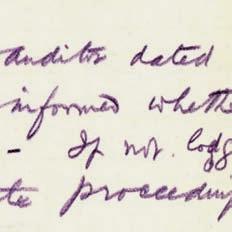 auditor dated
informed whethe
- If not. lodg
te proceeding